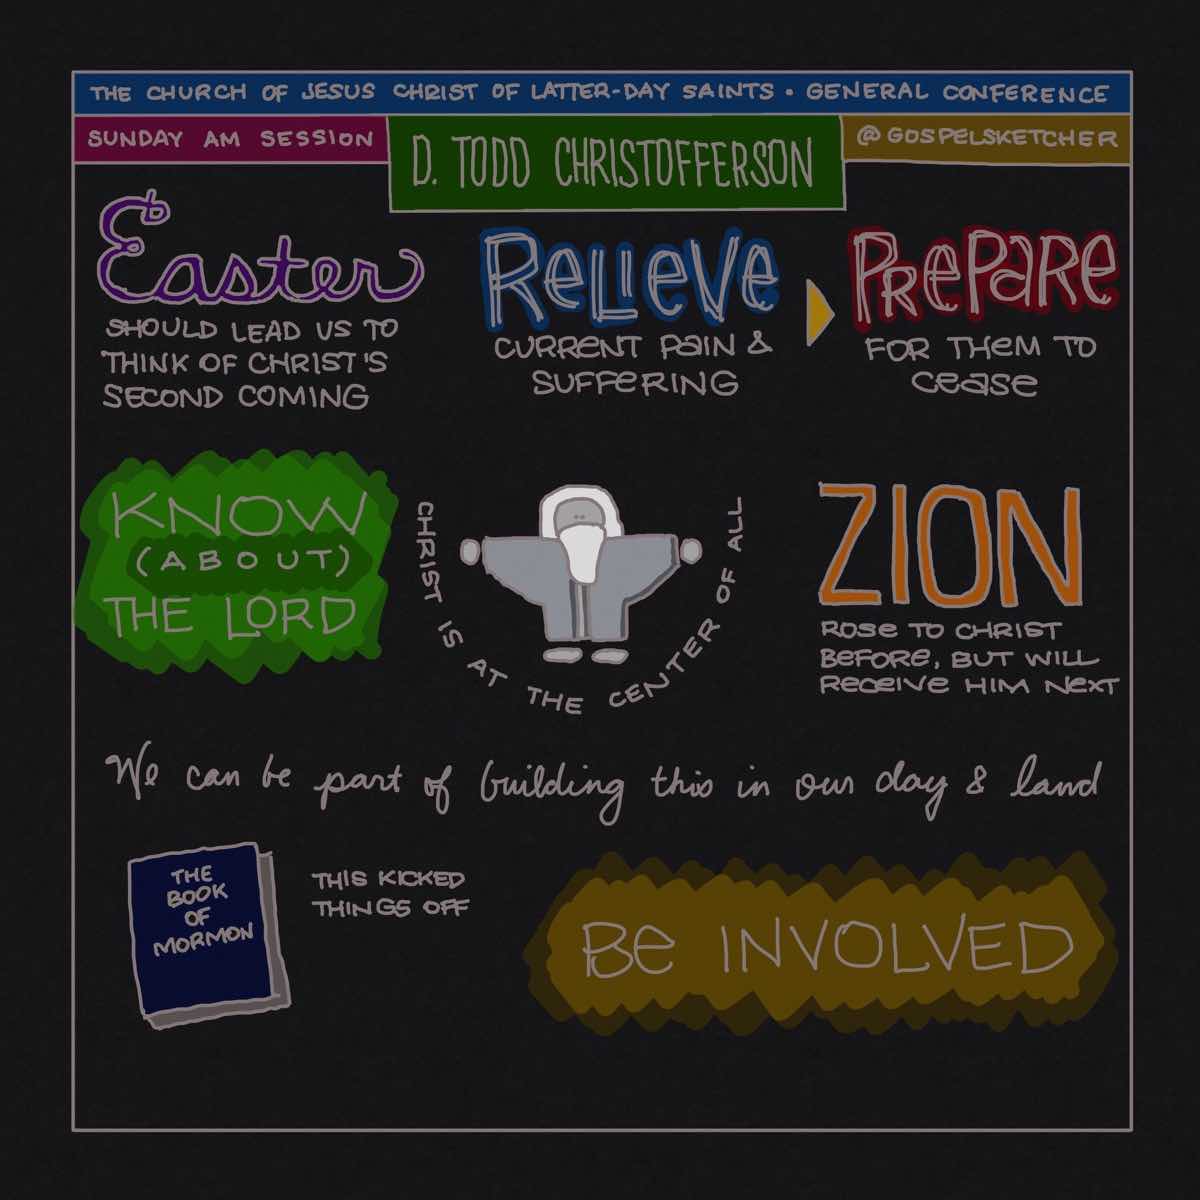 THE CHURCH OF JESUS CHRIST OF LATTER-DAY SAINTS • GENERAL CONFERENCE
SUNDAY AM SESSION
D. TODD CHRISTOFFERSON
@GOSPELSKETCHER
Easter
SHOULD LEAD US TO
THINK OF CHRIST'S
SECOND COMING
RELIEVE
CURRENT PAIN &
SUFFERING
PREPARE
FOR THEM TO
CEASE
KNOW
(ABOUT)
THE LORD
CHRIST IS AT THE CENTER OF ALL
ZION
ROSE TO CHRIST
BEFORE, BUT WILL
RECEIVE HIM NEXT
We can be part of building this in our day & land
THE
BOOK
OF
MORMON
THIS KICKED
THINGS OFF
BE INVOLVED